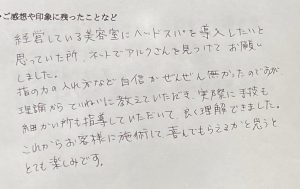 ・ご感想や印象に残ったことなど
経営している美容室にヘッドスパを導入したいと
思っていた所、ネットでアルクさんを見つけてお願い
しました。
指の力の入れ方など自信がぜんぜん無かったのですが
理論からていねいに教えていただき、実際に手技も
細かい所も指導していただいて、良く理解できました。
これからお客様に施術して喜んでもらえるかと思うと
とても楽しみです。